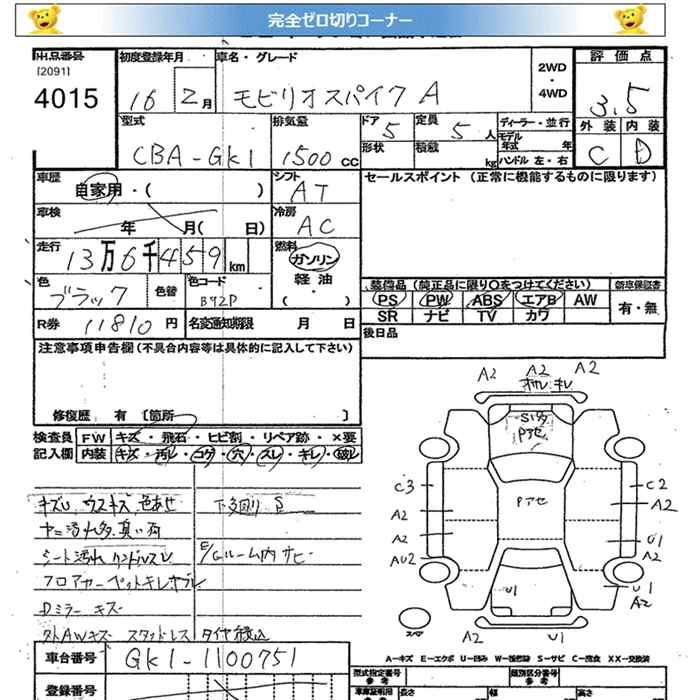 完全ゼロ切りコーナー
出品番号 初度登録年月 車名・グレード 2WD・4WD 評価点
[2091]
4015 16 2月 モビリオスパイク A 3.5
型式 排気量 ドア 定員 ディーラー・並行 外装 内装
CBA-GK1 1500cc 5 5人 モデル年式 年 C D
形状 積載 kg ハンドル 左・右
車歴 シフト セールスポイント (正常に機能するものに限ります)
自家用・( ) AT
車検 冷房
年 月( 日) AC
走行 燃料
13万6千459km ガソリン・軽油・( )
色 色替 色コード 装備品 (純正品に限り○をつけてください) 新車保証書
ブラック B92P PS PW ABS エアB AW 有・無
R券 11810円 名変通知期限 月 日 SR ナビ TV カワ
注意事項申告欄(不具合内容等は具体的に記入して下さい) 後日品
修復歴 有 [箇所 ]
検査員 FW キズ・飛石・ヒビ割・リペア跡・×要
記入欄 内装 キズ・汚レ・コゲ・穴・スレ・キレ・破レ
キズU ウスキズ 色あせ 下回りS
シート汚れ ハンドルスレ E/Gルーム内サビ
フロアカーペットキレ
Dミラーキズ
外AWキズ スタッドレスタイヤ積込
A2 A2 A2
Pアセ
C3 Pアセ C2
A2 A2
A2 U1
AU2 A2
U1 U1
A2
スペア A2 U1
A-キズ E-エクボ U-凹み W-補修跡 S-サビ C-腐食 XX-交換済
車台番号 GK1-1100751 型式指定番号 参考 類別区分番号 参考
登録番号 車庫証明用 参考 長さ 幅 高さ